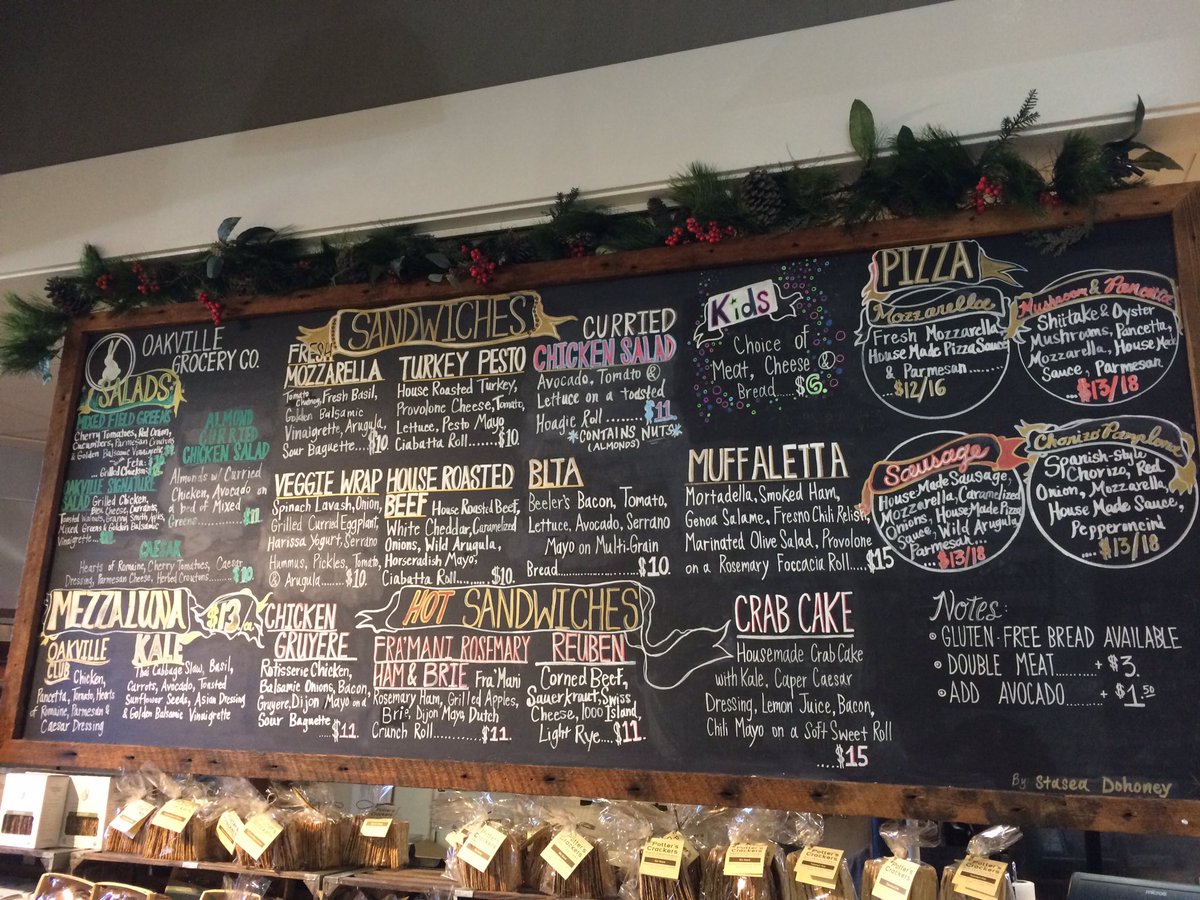 OAKVILLE
GROCERY CO.
SALADS
MIXED FIELD GREENS
Cherry Tomatoes, Red Onion,
Cucumbers, Parmesan Croutons
& Golden Balsamic Vinaigrette
Feta
Grilled Chicken
OAKVILLE SIGNATURE
SALAD Grilled Chicken,
Bleu Cheese, Currants,
Toasted Walnuts, Granny Smith Apples,
Mixed Greens & Golden Balsamic
Vinaigrette
ALMOND
CURRIED
CHICKEN SALAD
Almonds w/ Curried
Chicken, Avocado on
a bed of Mixed
Greens $11.
CAESAR
Hearts of Romaine, Cherry Tomatoes, Caesar
Dressing, Parmesan Cheese, Herbed Croutons $10.
MEZZALUNA $13/
OAKVILLE
CLUB Chicken,
Pancetta, Tomato, Hearts
of Romaine, Parmesan &
Caesar Dressing
KALE
Thai Cabbage Slaw, Basil,
Carrots, Avocado, Toasted
Sunflower Seeds, Asian Dressing
& Golden Balsamic Vinaigrette
SANDWICHES
FRESH
MOZZARELLA
Tomato
Chutney, Fresh Basil,
Golden Balsamic
Vinaigrette, Arugula,
Sour Baguette..$10.
TURKEY PESTO
House Roasted Turkey,
Provolone Cheese, Tomato,
Lettuce, Pesto Mayo
Ciabatta Roll.......$10.
CURRIED
CHICKEN SALAD
Avocado, Tomato &
Lettuce on a toasted
Hoagie Roll....... $11.
*CONTAINS NUTS*
(ALMONDS)
VEGGIE WRAP
Spinach Lavash, Onion,
Grilled Curried Eggplant,
Harissa Yogurt, Serrano
Hummus, Pickles, Tomato,
& Arugula........$10.
HOUSE ROASTED
BEEF House Roasted Beef,
White Cheddar, Caramelized
Onions, Wild Arugula,
Horseradish Mayo,
Ciabatta Roll.......$10.
BLTA
Beeler's Bacon, Tomato,
Lettuce, Avocado, Serrano
Mayo on Multi-Grain
Bread...............$10.
MUFFALETTA
Mortadella, Smoked Ham,
Genoa Salame, Fresno Chili Relish,
Marinated Olive Salad, Provolone
on a Rosemary Foccacia Roll....$15
CHICKEN
GRUYERE
Rotisserie Chicken,
Balsamic Onions, Bacon,
Gruyere, Dijon Mayo on
Sour Baguette
...$11.
HOT SANDWICHES
FRA'MANI ROSEMARY
HAM & BRIE Fra'Mani
Rosemary Ham, Grilled Apples,
Brie, Dijon Mayo Dutch
Crunch Roll...........$11.
REUBEN
Corned Beef,
Sauerkraut, Swiss
Cheese, 1000 Island,
Light Rye....$11.
CRAB CAKE
Housemade Crab Cake
with Kale, Caper Caesar
Dressing, Lemon Juice, Bacon,
Chili Mayo on a Soft Sweet Roll
...$15
Kids
Choice of
Meat, Cheese &
Bread...$6.
PIZZA
Mozzarelloe
Fresh Mozzarella
House Made Pizza Sauce
& Parmesan......
...$12/16
Mushroom & Pancetta
Shiitake & Oyster
Mushrooms, Pancetta,
Mozzarella, House Made
Sauce, Parmesan
...$13/18
Sausage
House Made Sausage,
Mozzarella, Caramelized
Onions, House Made Pizza
Sauce, Wild Arugula
Parmesan...
...$13/18
Chorizo Pamplona
Spanish-Style
Chorizo, Red
Onion, Mozzarella,
House Made Sauce,
Pepperoncini
...$13/18
Notes:
• GLUTEN-FREE BREAD AVAILABLE
• DOUBLE MEAT...... + $3.
• ADD AVOCADO........ + $1.50
By: Stasea Dohoney
Potter's
Crackers
Potter's Crackers
Potter's
Crackers
micros